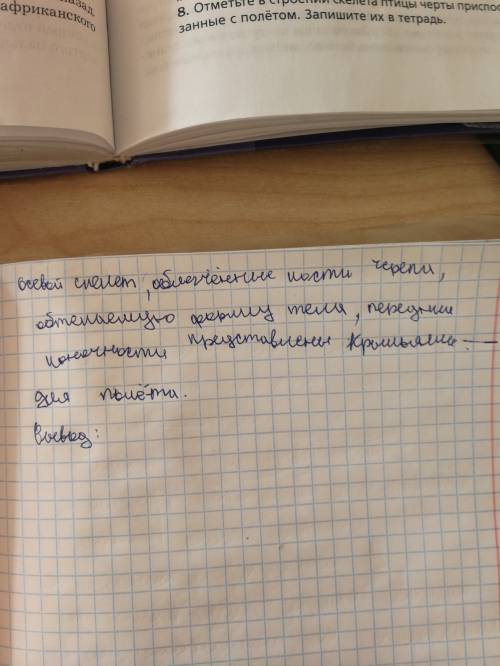 назад
африканского
8. Отметьте в строении скелета птицы черты приспос
занные с полётом. Запишите их в тетрадь.
осевой скелет, облегчённые кости черепа,
обтекаемую форму тела, передние
конечности представлены крыльями —
для полёта.
Вывод: